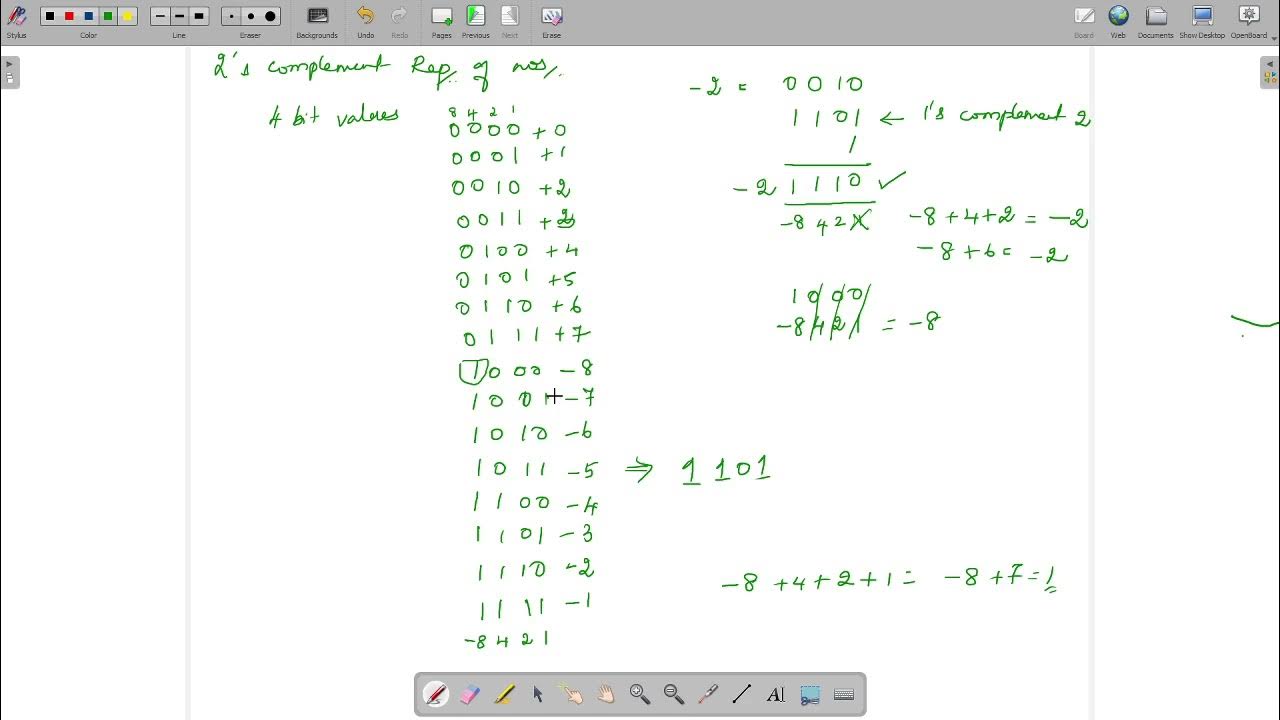 Stylus Color Line Eraser Backgrounds Undo Redo Pages Previous Next Erase Board Web Documents Show Desktop OpenBoard
2's complement Rep. of nos/.
4 bit values
8 4 2 1
0 0 0 0 +0
0 0 0 1 +1
0 0 1 0 +2
0 0 1 1 +3
0 1 0 0 +4
0 1 0 1 +5
0 1 1 0 +6
0 1 1 1 +7
1 0 0 0 -8
1 0 0 1 -7
1 0 1 0 -6
1 0 1 1 -5 ⇒ 1 1 0 1
1 1 0 0 -4
1 1 0 1 -3
1 1 1 0 -2
1 1 1 1 -1
-8 4 2 1
-2 = 0 0 1 0
1 1 0 1 ← 1's complement 2
1
-2 1 1 1 0 ✓
-8 4 2 1
-8+4+2 = -2
-8+6= -2
1 0 0 0
-8 4 2 1 = -8
-8 +4+2+1= -8+7=1
AI